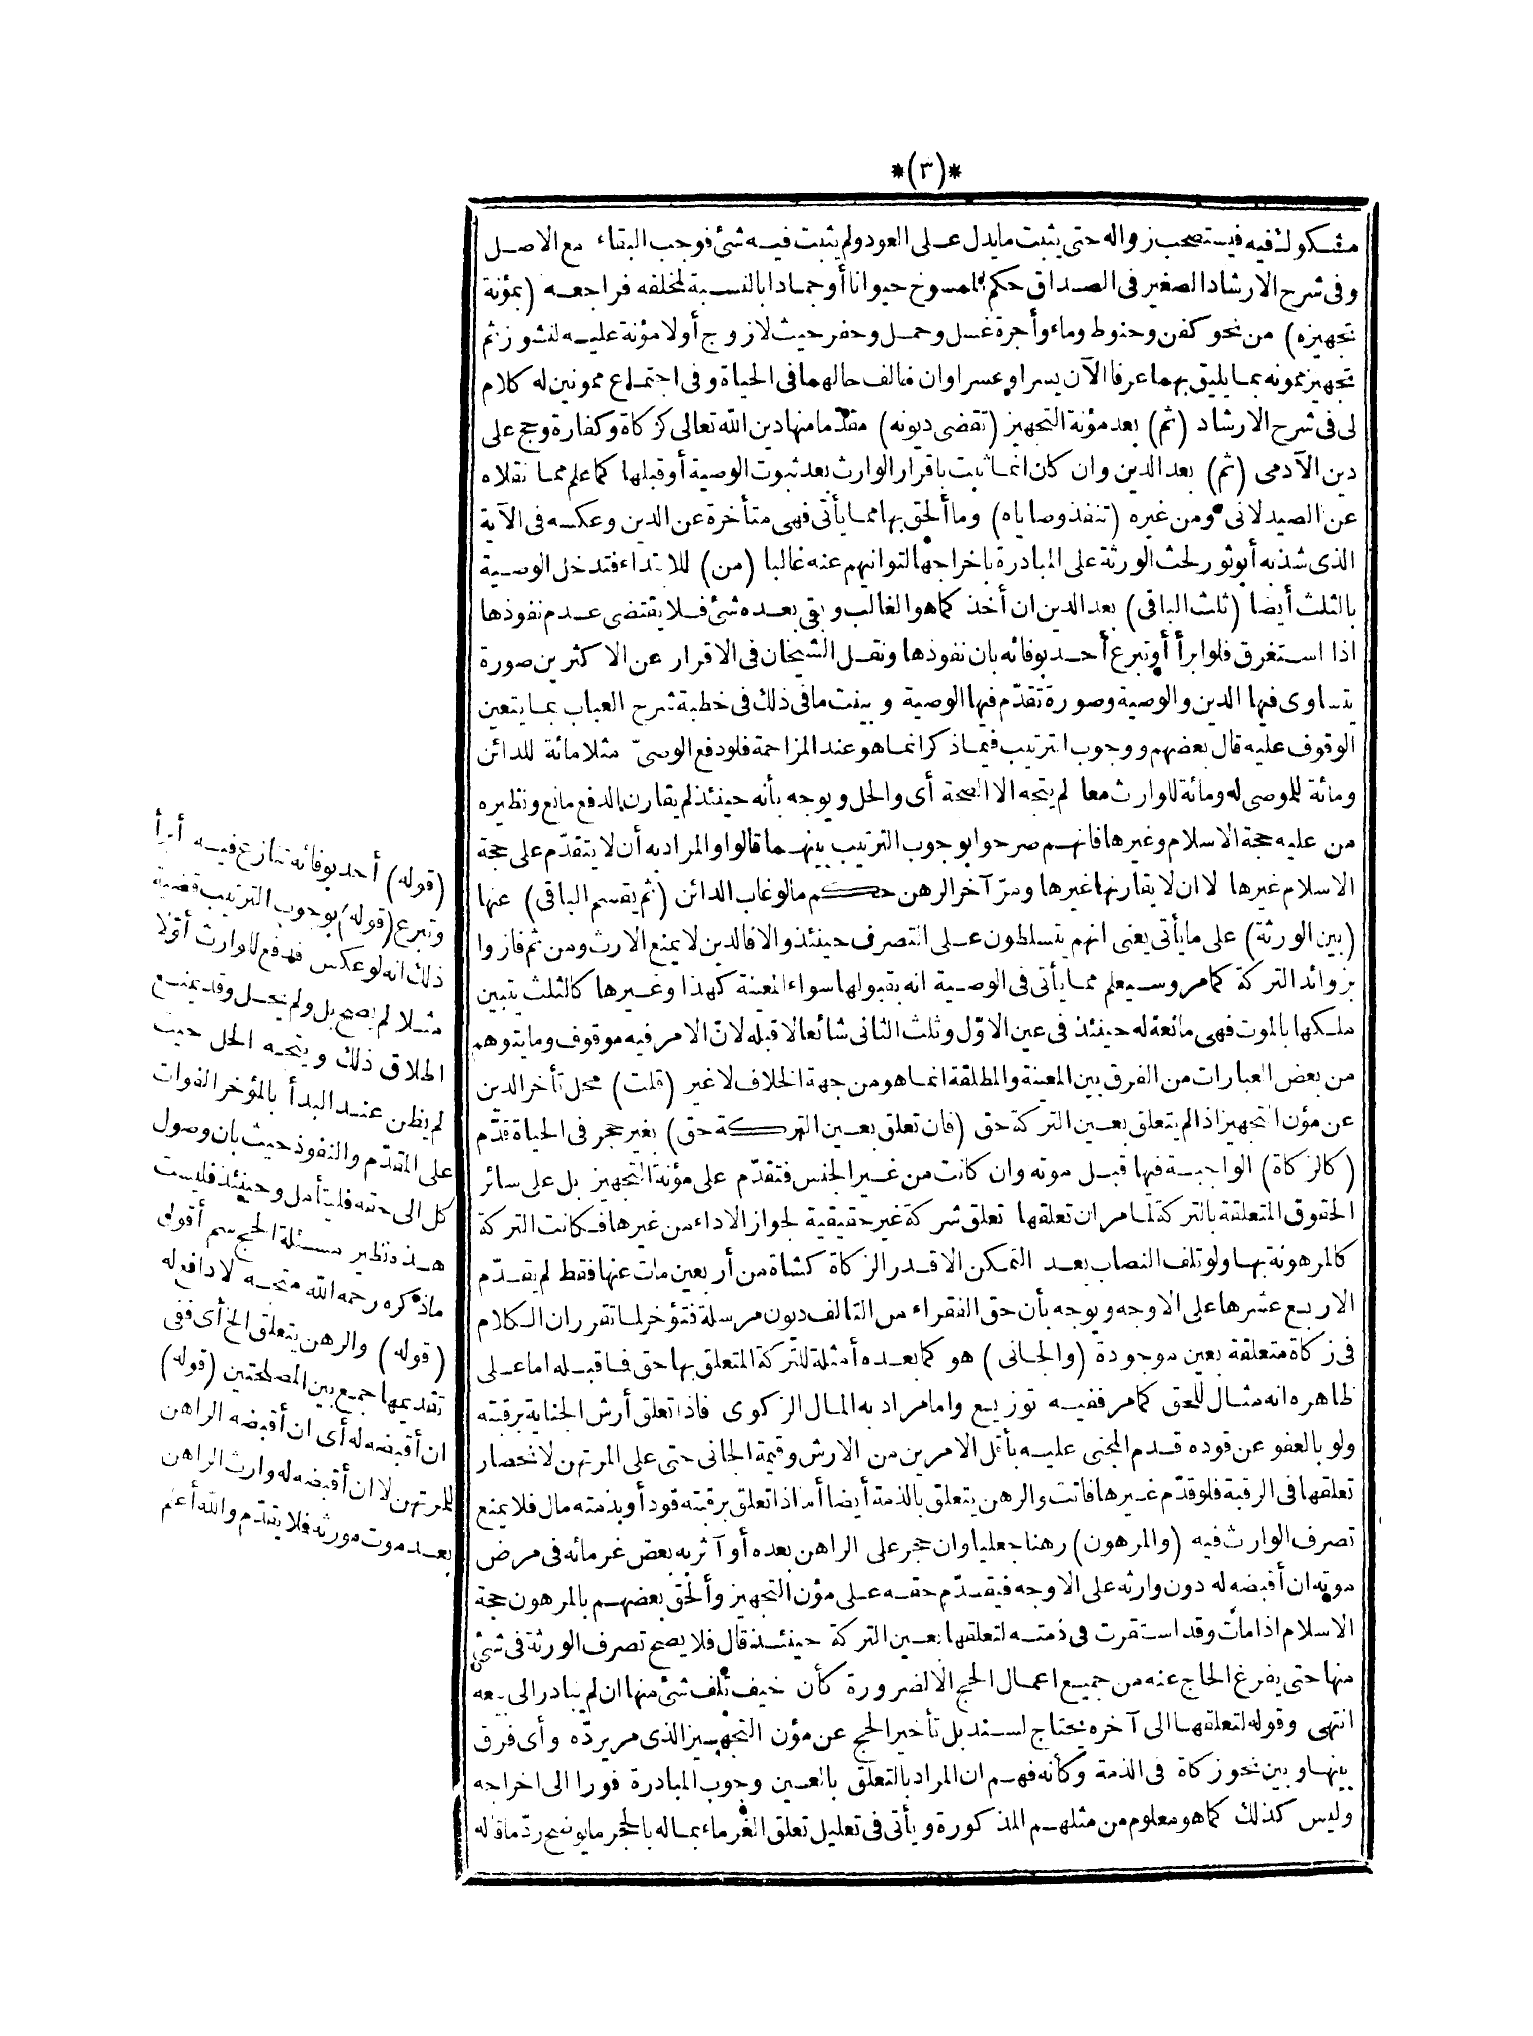 *(٣)*
مشكوك فيه فيستصحب زواله حتى يثبت ما يدل على العود ولم يثبت فيه شئ فوجب البقاء مع الاصل
وفى شرح الارشاد الصغير فى الصداق حكم الممسوخ حيوانا أو جمادا بالنسبة لمخلفه فراجعه (بمؤنة
تجهيزه) من نحو كفن وحنوط وماء وأجرة غسل وحمل وحفر حيث لا زوج أو لا مؤنة عليه لنشوز ثم
تجهيز ممونه بما يليق بهما عرفا الآن يسرا وعسرا وان خالف حالهما فى الحياة وفى اجتماع ممونين له كلام
لى فى شرح الارشاد (ثم) بعد مؤنة التجهيز (تقضى ديونه) مقدّما منها دين الله تعالى كزكاة وكفارة وحج على
دين الآدمى (ثم) بعد الدين وان كان انما ثبت باقرار الوارث بعد ثبوت الوصية أو قبلها كما علم مما نقلاه
عن الصيدلانى ومن غيره (تنفذ وصاياه) وما ألحق بها مما يأتى فهى متأخرة عن الدين وعكسه فى الآية
الذى شذ به أبو ثور لحث الورثة على المبادرة باخراجها لتوانيهم عنه غالبا (من) للابتداء فتدخل الوصية
بالثلث أيضا (ثلث الباقى) بعد الدين ان أخذ كما هو الغالب وبقى بعده شئ فلا يقتضى عدم نفوذها
اذا استغرق فلو ابرأ أو تبرع أحد بوفائه بان نفوذها ونقل الشيخان فى الاقرار عن الاكثرين صورة
يتساوى فيها الدين والوصية وصورة تقدّم فيها الوصية وبينت ما فى ذلك فى خطبة شرح العباب بما يتعين
الوقوف عليه قال بعضهم ووجوب الترتيب فيما ذكر انما هو عند المزاحمة فلو دفع الوصىّ مثلا مائة للدائن
ومائة للموصى له ومائة للوارث معا لم يتجه الا الصحة أى والحل ويوجه بأنه حينئذ لم يقارن الدفع مانع ونظيره
من عليه حجة الاسلام وغيرها فانهم صرحوا بوجوب الترتيب بينهما قالوا والمراد به أن لا يتقدّم على حجة
الاسلام غيرها لا ان لا يقارنها غيرها ومرّ آخر الرهن حكم ما لو غاب الدائن (ثم يقسم الباقى) عنها
(بين الورثة) على ما يأتى يعنى انهم يتسلطون على التصرف حينئذ والا فالدين لا يمنع الارث ومن ثم فازوا
بزوائد التركة كما مر وسيعلم مما يأتى فى الوصية انه بقبولها سواء المعينة كهذا وغيرها كالثلث يتبين
ملكها بالموت فهى مانعة له حينئذ فى عين الاوّل وثلث الثانى شائعا لا قبله لانّ الامر فيه موقوف وما يتوهم
من بعض العبارات من الفرق بين المعينة والمطلقة انما هو من جهة الخلاف لا غير (قلت) محل تأخر الدين
عن مؤن التجهيز اذا لم يتعلق بعين التركة حق (فان تعلق بعين التركة حق) بغير حجر فى الحياة قدّم
(كالزكاة) الواجبة فيها قبل موته وان كانت من غير الجنس فتقدّم على مؤنة التجهيز بل على سائر
الحقوق المتعلقة بالتركة لما مر ان تعلقها تعلق شركة غير حقيقية لجواز الاداء من غيرها فكانت التركة
كالمرهونة بها ولو تلف النصاب بعد التمكن الا قدر الزكاة كشاة من أربعين مات عنها فقط لم يقدّم
الاربع عشرها على الاوجه ويوجه بأن حق الفقراء من التالف ديون مرسلة فتؤخر لما تقرر ان الكلام
فى زكاة متعلقة بعين موجودة (والجانى) هو كما بعده أمثلة للتركة المتعلق بها حق فما قبله اما على
ظاهره انه مثال للحق كما مر ففيه توزيع واما مراد به المال الزكوى فاذا تعلق أرش الجناية برقبته
ولو بالعفو عن قوده قدم المجنى عليه بأقل الامرين من الارش وقيمة الجانى حتى على المرتهن لانحصار
تعلقها فى الرقبة فلو قدّم غيرها فاتت والرهن يتعلق بالذمة أيضا أما اذا تعلق برقبته قود أو بذمته مال فلا يمنع
تصرف الوارث فيه (والمرهون) رهنا جعليا وان حجر على الراهن بعده أو آثر به بعض غرمائه فى مرض
موته ان أقبضه له دون وارثه على الاوجه فيقدّم حقه على مؤن التجهيز وألحق بعضهم بالمرهون حجة
الاسلام اذا مات وقد استقرت فى ذمته لتعلقها بعين التركة حينئذ قال فلا يصح تصرف الورثة فى شئ
منها حتى يفرغ الحاج عنه من جميع اعمال الحج الا لضرورة كأن خيف تلف شئ منها ان لم يبادر الى بيعه
انتهى وقوله لتعلقها الى آخره يحتاج لسند بل تأخير الحج عن مؤن التجهيز الذى مر يردّه وأى فرق
بينها وبين نحو زكاة فى الذمة وكأنه فهم ان المراد بالتعلق بالعين وجوب المبادرة فورا الى اخراجه
وليس كذلك كما هو معلوم من مثلهم المذكورة ويأتى فى تعليل تعلق الغرماء بماله بالحجر ما يوضح ردّ ما قاله
(قوله) أحد بوفائه تنازع فيه أبرأ
وتبرع (قوله) بوجوب الترتيب قضية
ذلك انه لو عكس فدفع للوارث أوّلا
مثلا لم يصح بل ولم يحل وقد يمنع
اطلاق ذلك ويتجه الحل حيث
لم يظن عند البدأ بالمؤخر الفوات
على المقدّم والنفوذ حيث بان وصول
كل الى حقه فليتأمل وحينئذ فليست
هذه نظير مسئلة الحج سم أقول
ماذكره رحمه الله متجه لا دافع له
(قوله) والرهن يتعلق الخ أى ففى
تقديمها جمع بين المصلحتين (قوله)
ان أقبضه له أى ان أقبضه الراهن
للمرتهن لا ان أقبضه له وارث الراهن
بعد موت مورثه فلا يتقدّم والله أعلم